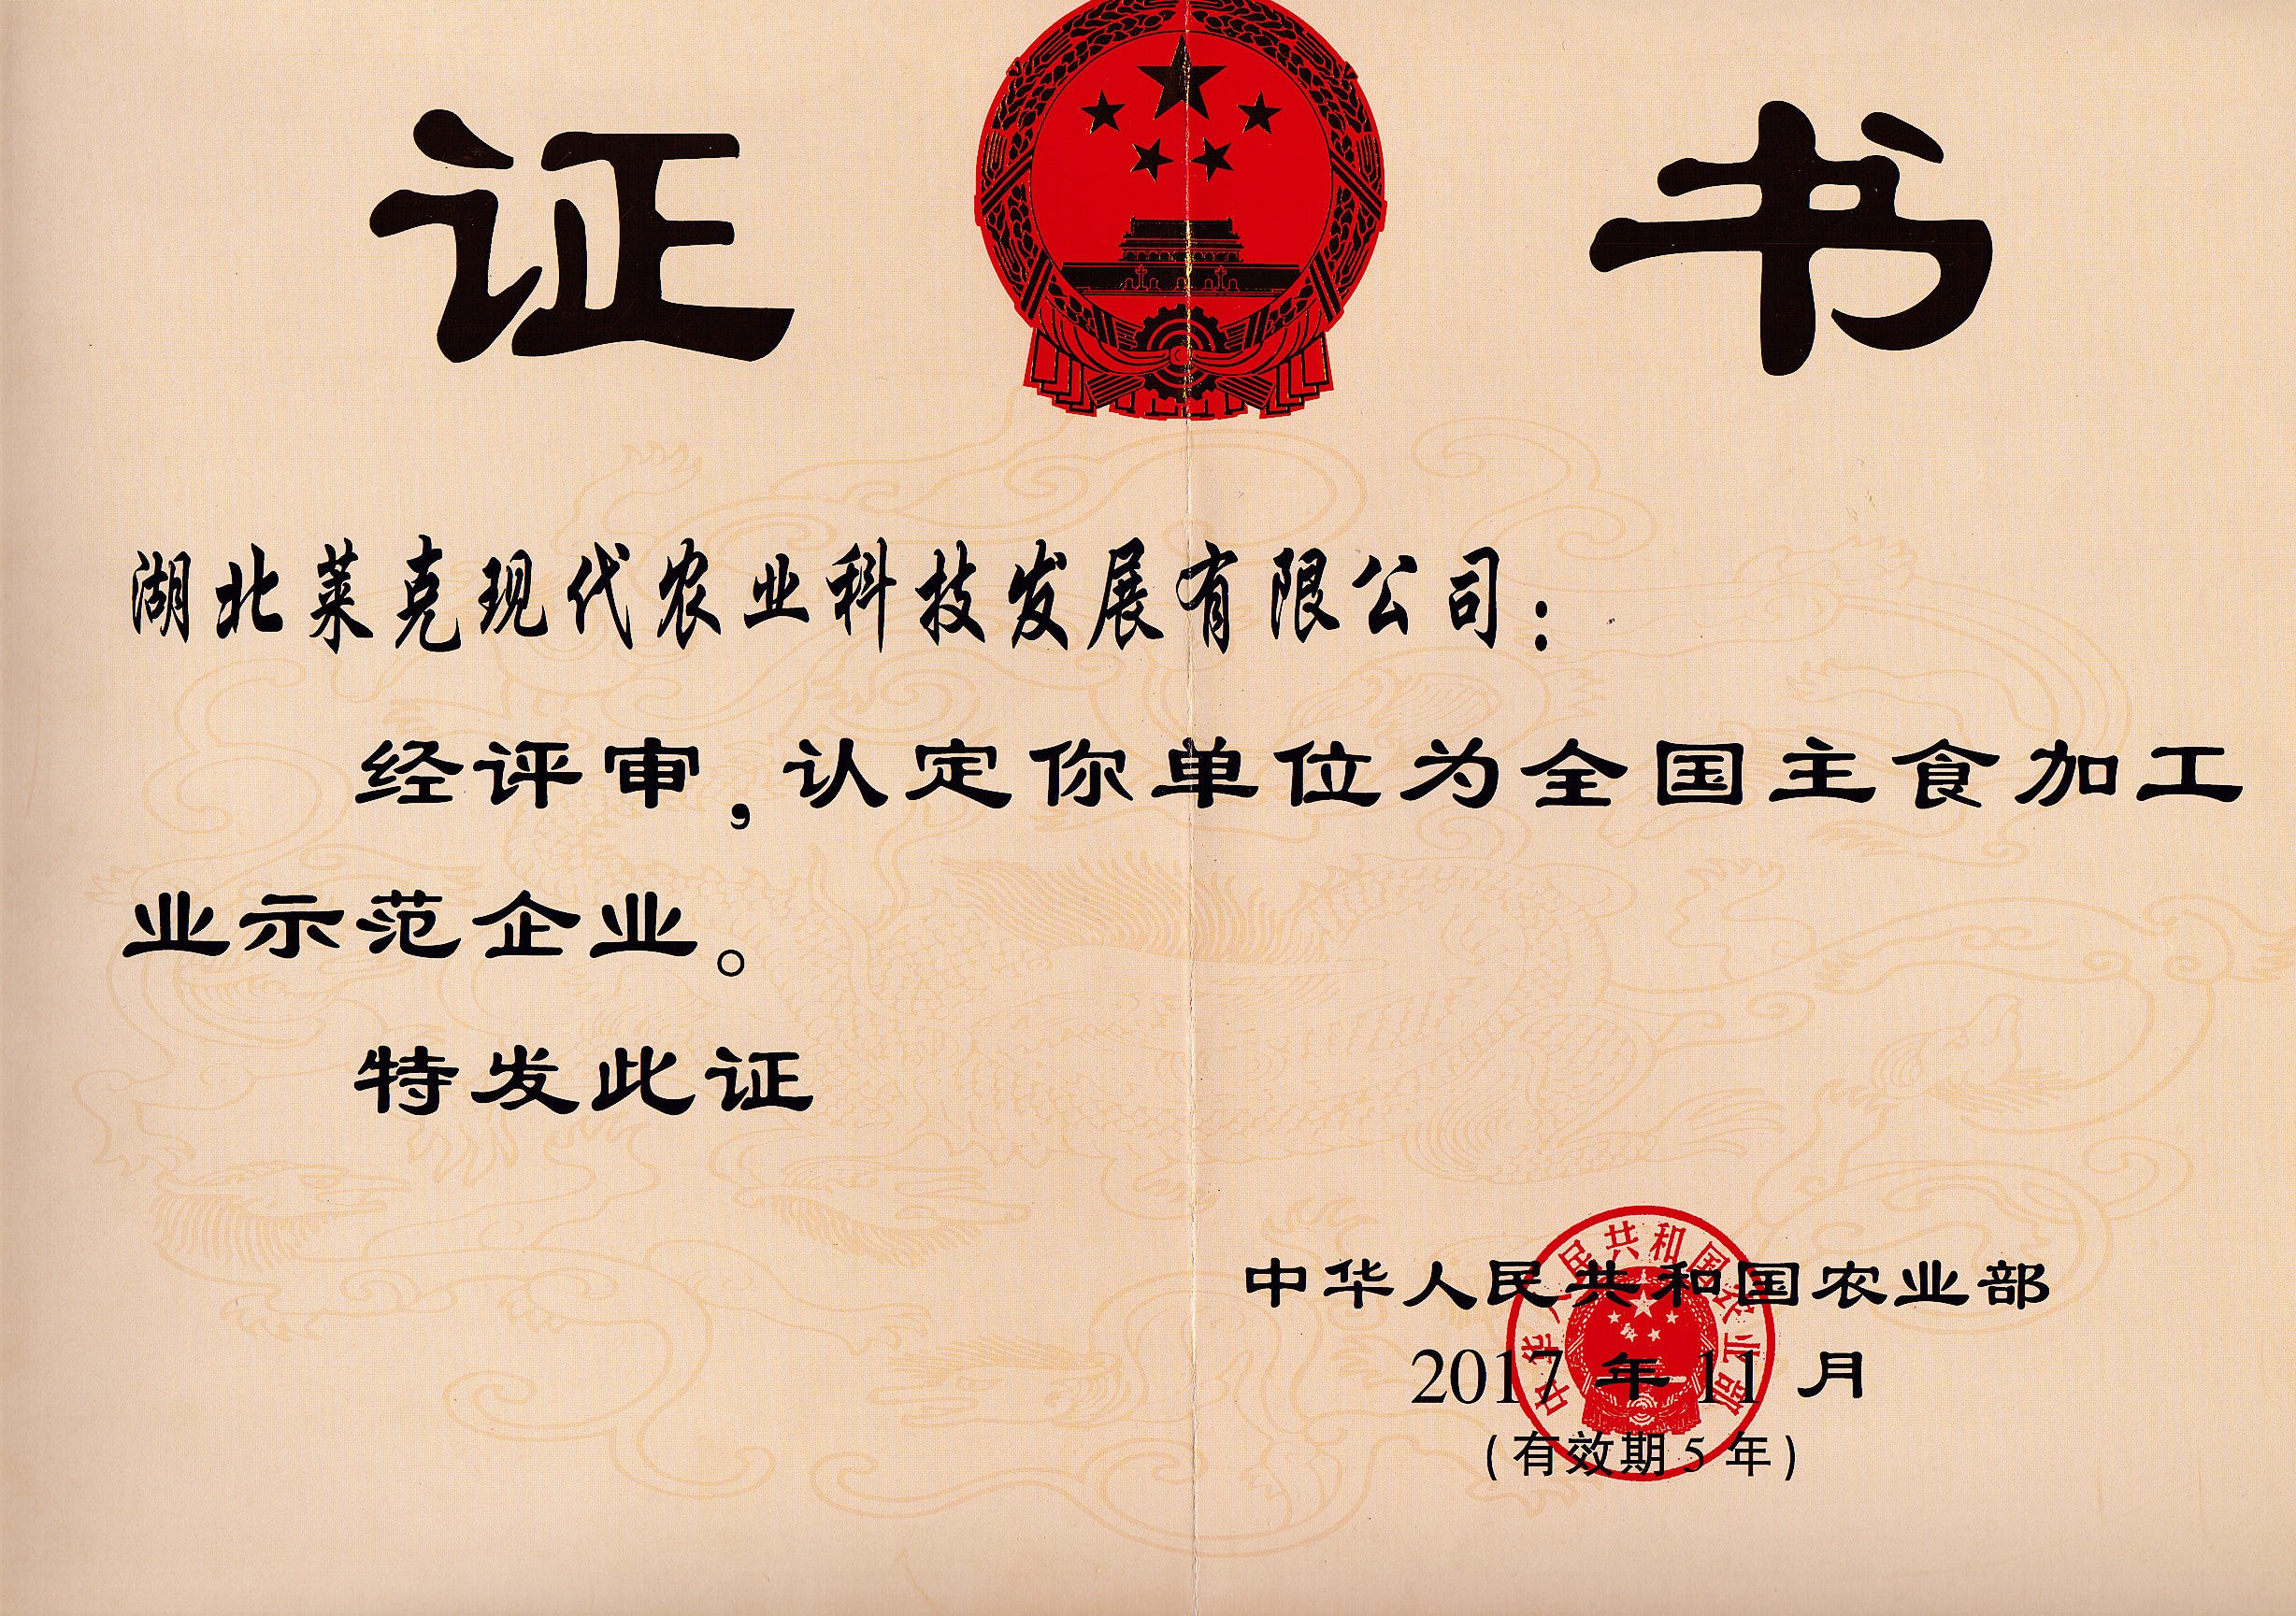 证书
湖北莱克现代农业科技发展有限公司：
经评审，认定你单位为全国主食加工
业示范企业。
特发此证
中华人民共和国农业部
2017年11月
(有效期5年)
中华人民共和国农业部